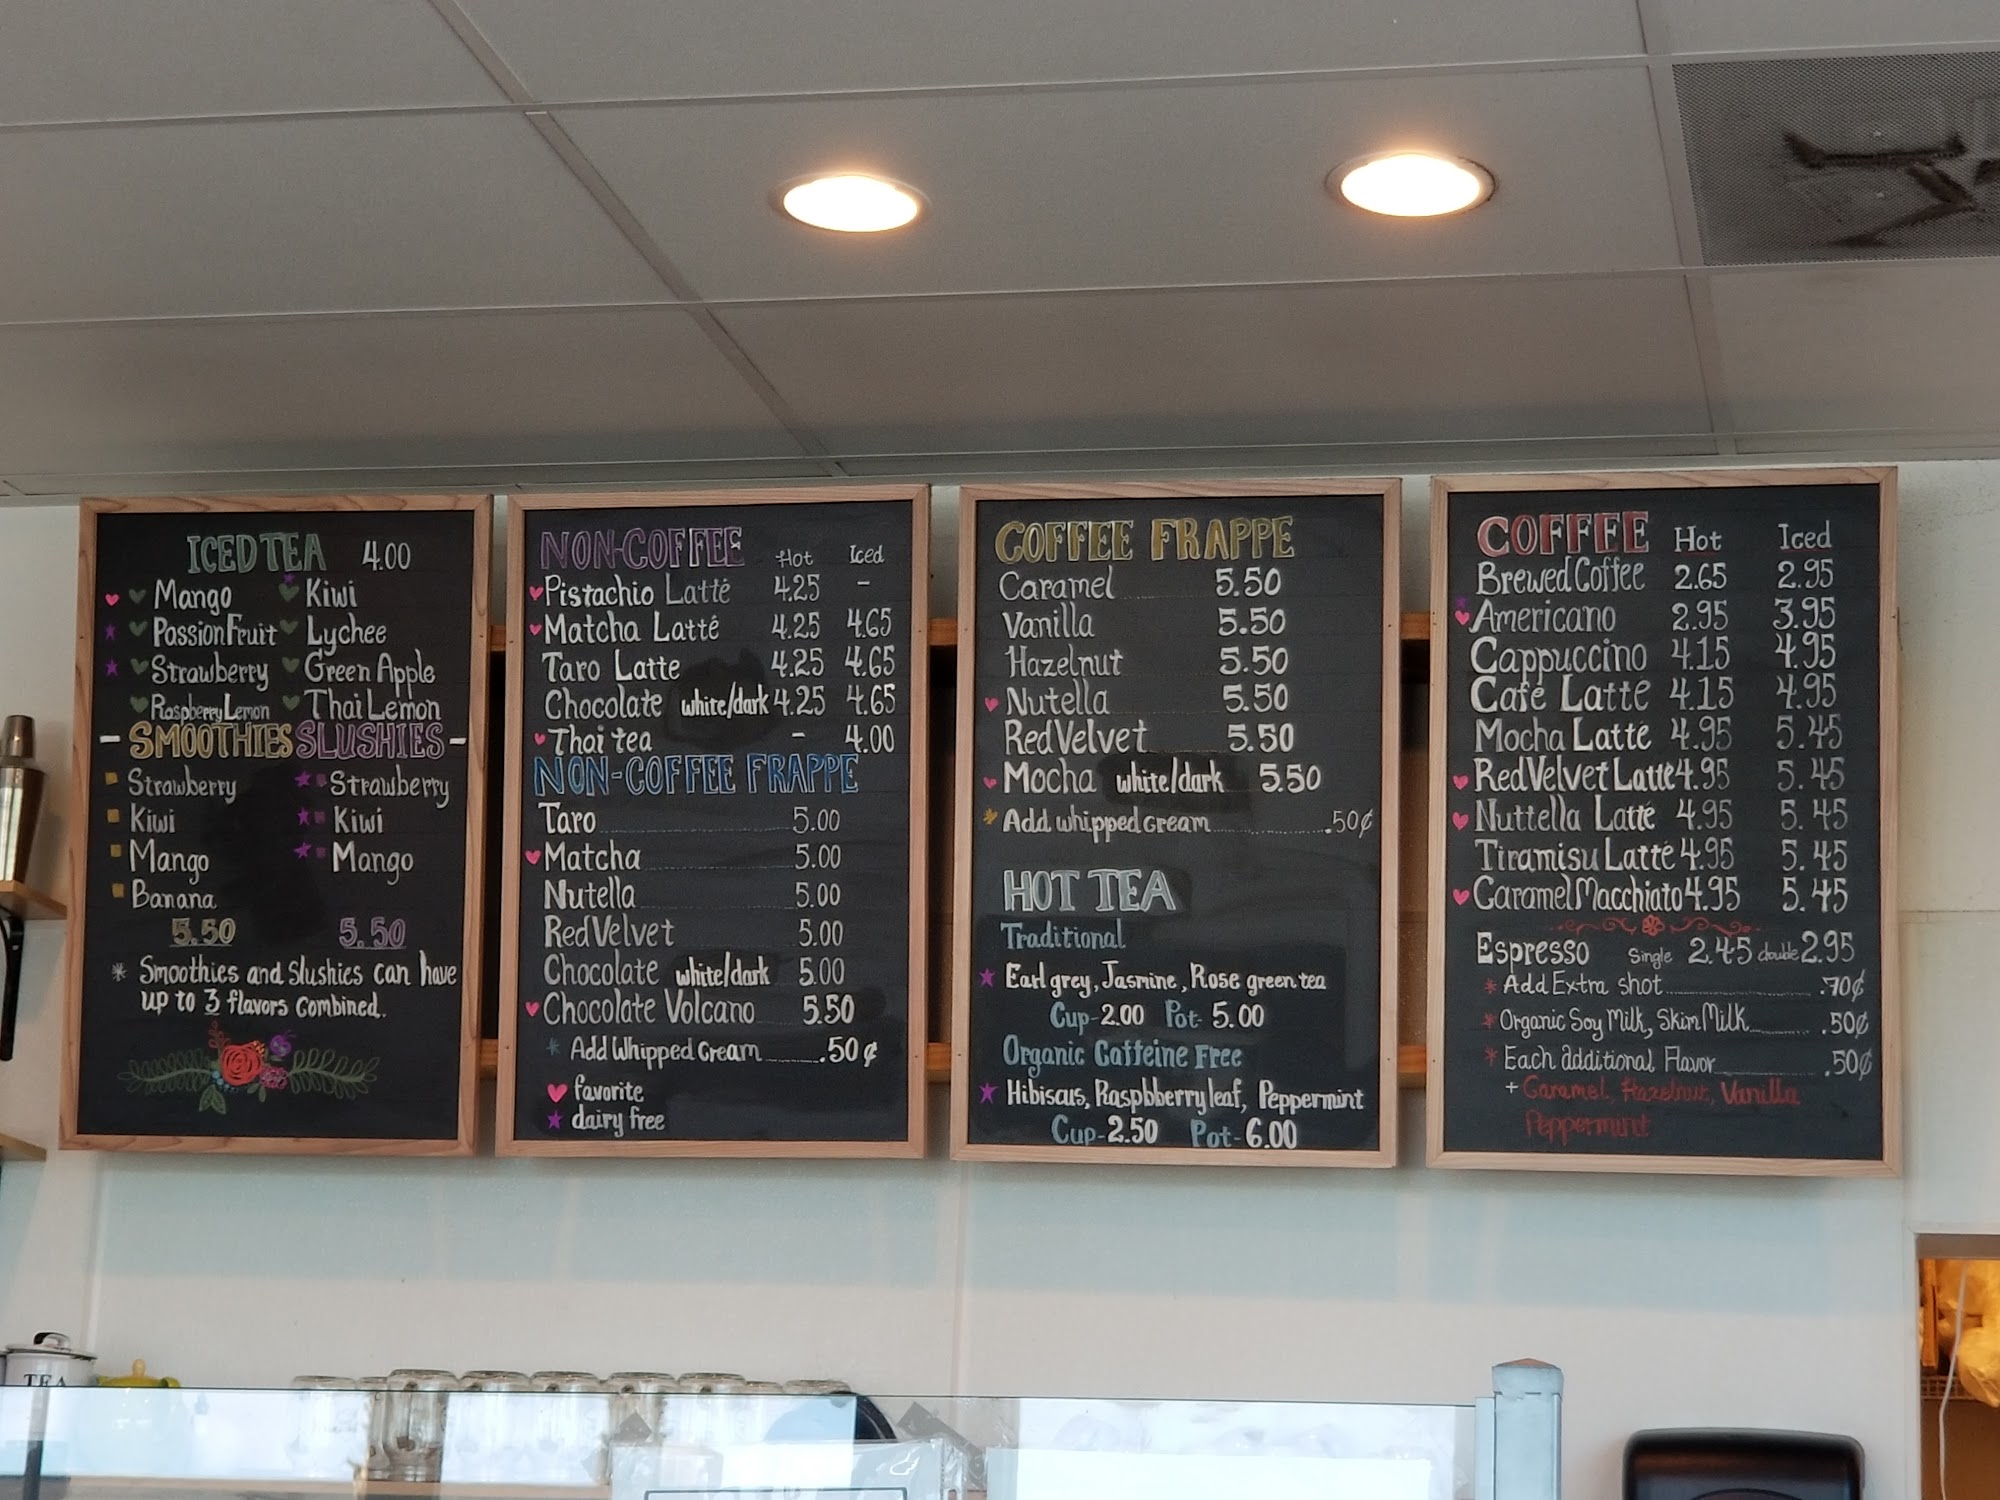 ICED TEA 4.00
Mango Kiwi
Passion Fruit Lychee
Strawberry Green Apple
Raspberry Lemon Thai Lemon
- SMOOTHIES SLUSHIES -
Strawberry Strawberry
Kiwi Kiwi
Mango Mango
Banana
5.50 5.50
* Smoothies and Slushies can have
up to 3 flavors combined.
NON-COFFEE Hot Iced
Pistachio Latté 4.25 -
Matcha Latté 4.25 4.65
Taro Latte 4.25 4.65
Chocolate white/dark 4.25 4.65
Thai tea - 4.00
NON-COFFEE FRAPPE
Taro 5.00
Matcha 5.00
Nutella 5.00
Red Velvet 5.00
Chocolate white/dark 5.00
Chocolate Volcano 5.50
* Add Whipped Cream .50¢
favorite
dairy free
COFFEE FRAPPE
Caramel 5.50
Vanilla 5.50
Hazelnut 5.50
Nutella 5.50
Red Velvet 5.50
Mocha white/dark 5.50
* Add whipped cream .50¢
HOT TEA
Traditional
Earl grey, Jasmine, Rose green tea
Cup- 2.00 Pot- 5.00
Organic Caffeine Free
Hibiscus, Raspbberry leaf, Peppermint
Cup- 2.50 Pot- 6.00
COFFEE Hot Iced
Brewed Coffee 2.65 2.95
Americano 2.95 3.95
Cappuccino 4.15 4.95
Café Latte 4.15 4.95
Mocha Latté 4.95 5.45
Red Velvet Latté 4.95 5.45
Nuttella Latté 4.95 5.45
Tiramisu Latté 4.95 5.45
Caramel Macchiato 4.95 5.45
Espresso Single 2.45 double 2.95
* Add Extra shot .70¢
* Organic Soy Milk, Skim Milk .50¢
* Each additional Flavor .50¢
+ Caramel, Hazelnut, Vanilla
Peppermint
TEA